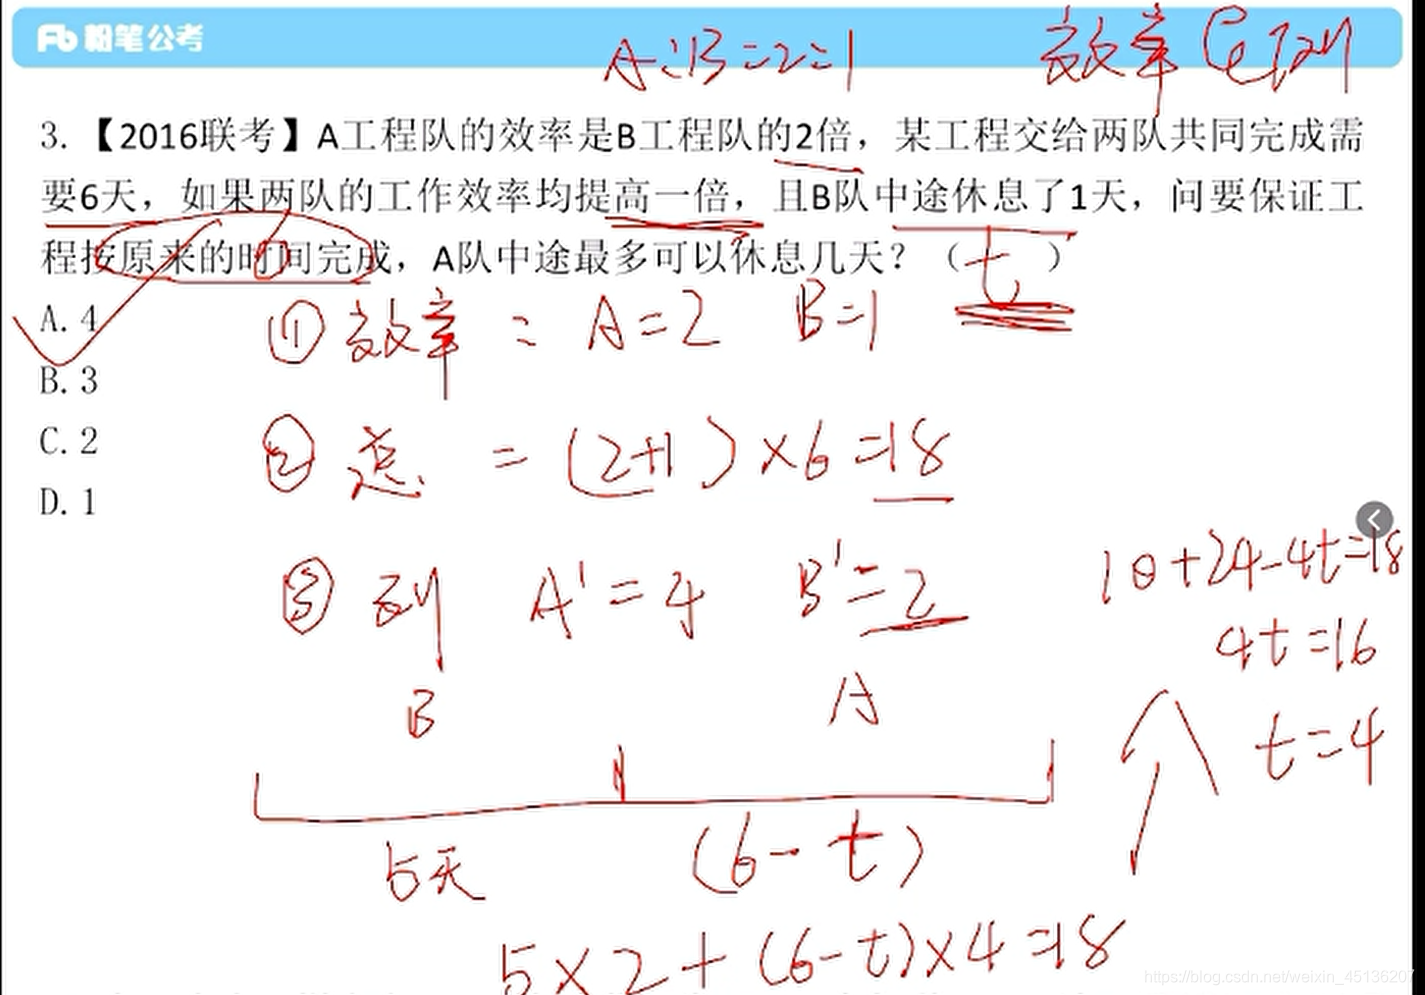 粉笔公考
A:B=2=1 效率
3.【2016联考】A工程队的效率是B工程队的2倍，某工程交给两队共同完成需
要6天，如果两队的工作效率均提高一倍，且B队中途休息了1天，问要保证工
程按原来的时间完成，A队中途最多可以休息几天？（t）
6
A. 4
B. 3
C. 2
D. 1
① 效率 : A=2 B=1
② 总 = (2+1)×6=18
③ 列 A'=4 B'=2
10+24-4t=18
4t=16
t=4
B A
5天 (6-t)
5×2+(6-t)×4=18
https://blog.csdn.net/weixin_45136207